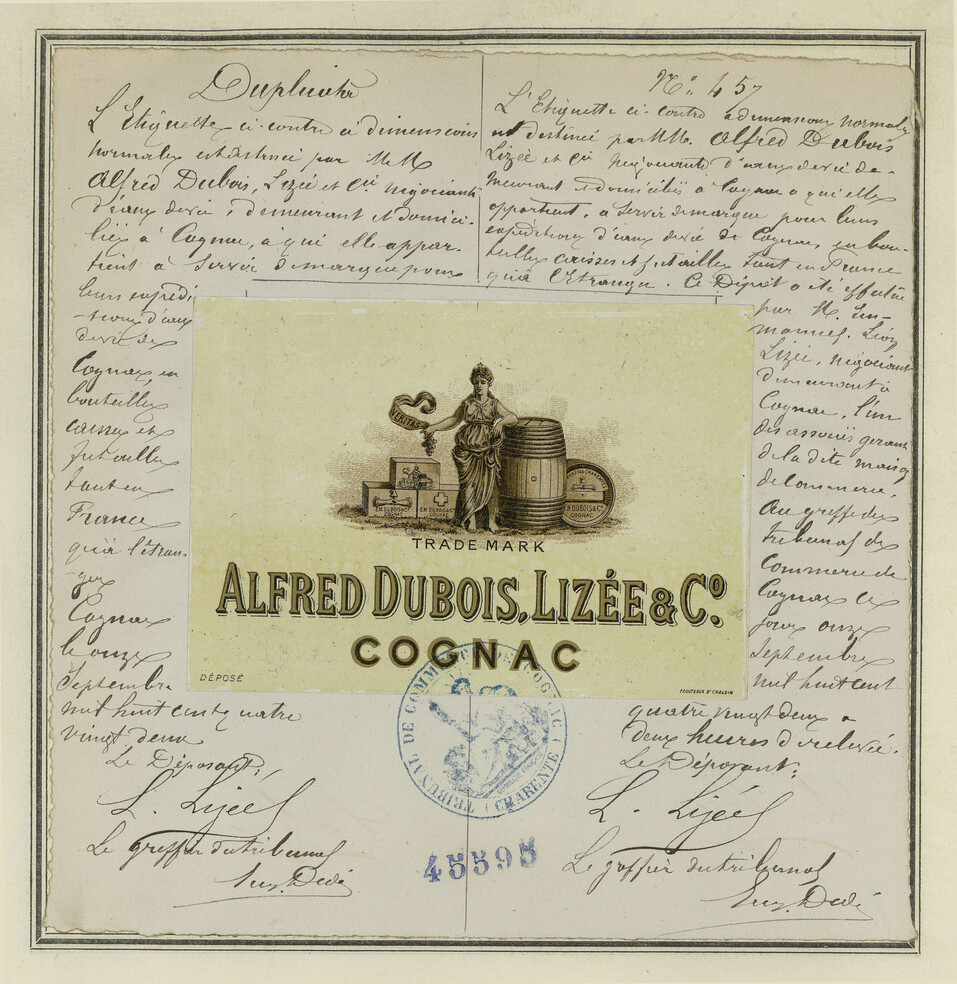 Duplicata
L'Etiquette ci-contre à dimensions
normales est destinée par M.M.
Alfred Dubois, Lizée et Cie négociants
d'eaux de vie, demeurant et domici-
liés à Cognac, à qui elle appar-
tient à servir de marque pour
leurs expédi-
-tions d'eaux
de vie de
Cognac, en
bouteilles
caisses et
futailles
tant en
France
qu'à l'étran-
ger
Cognac
le onze
Septembre
mil huit cent quatre
vingt deux
Le Déposant,
L. Lizée
Le greffier du tribunal
No. 457
L'Etiquette ci-contre à dimensions normales
est destinée par MM. Alfred Dubois
Lizée et Cie négociants d'eaux de vie de-
meurant et domiciliés à Cognac à qui elle
appartient, à servir de marque pour leurs
expéditions d'eaux de vie de Cognac, en bou-
teilles caisses et futailles tant en France
qu'à l'Etranger. Ce Dépôt a été effectué
par M. Em-
manuel Léon
Lizée, négociant
demeurant à
Cognac, l'un
des associés gérants
de la dite maison
de commerce,
Au greffe du
tribunal de
Commerce de
Cognac le
jour onze
Septembre
mil huit cent
quatre vingt deux à
deux heures de relevée.
Le Déposant,
L. Lizée
Le greffier du tribunal
VERITAS
EM. DUBOIS & Co
COGNAC
EM. DUBOIS & Co
COGNAC
TRADE MARK
ALFRED DUBOIS, LIZÉE & Co.
COGNAC
DÉPOSÉ
TRIBUNAL DE COMMERCE DE COGNAC (CHARENTE)
45595